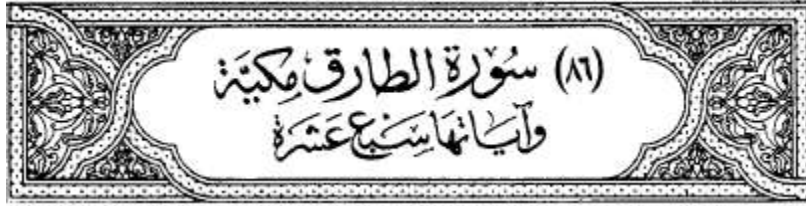 (٨٦) سُوْرَةِ الطَارِق مِكيَّة
وَآيَاتهَا سَبْع عَشرَة